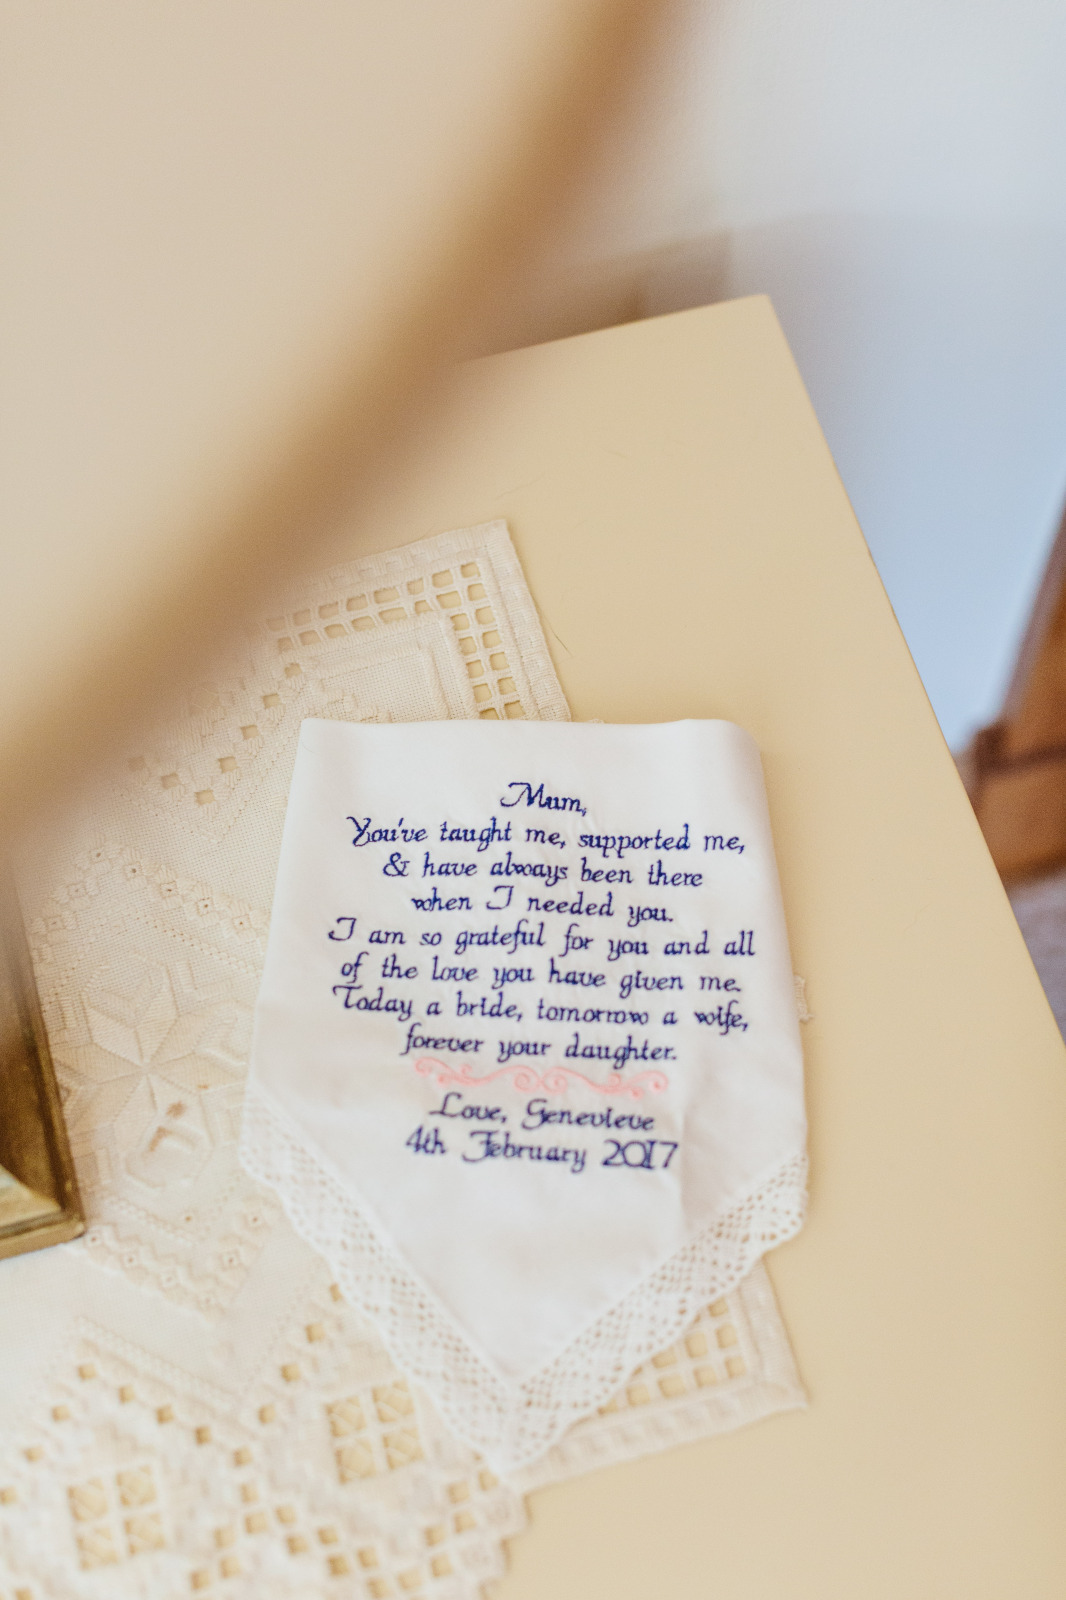 Mum,
You've taught me, supported me,
& have always been there
when I needed you.
I am so grateful for you and all
of the love you have given me.
Today a bride, tomorrow a wife,
forever your daughter.
Love, Genevieve
4th February 2017